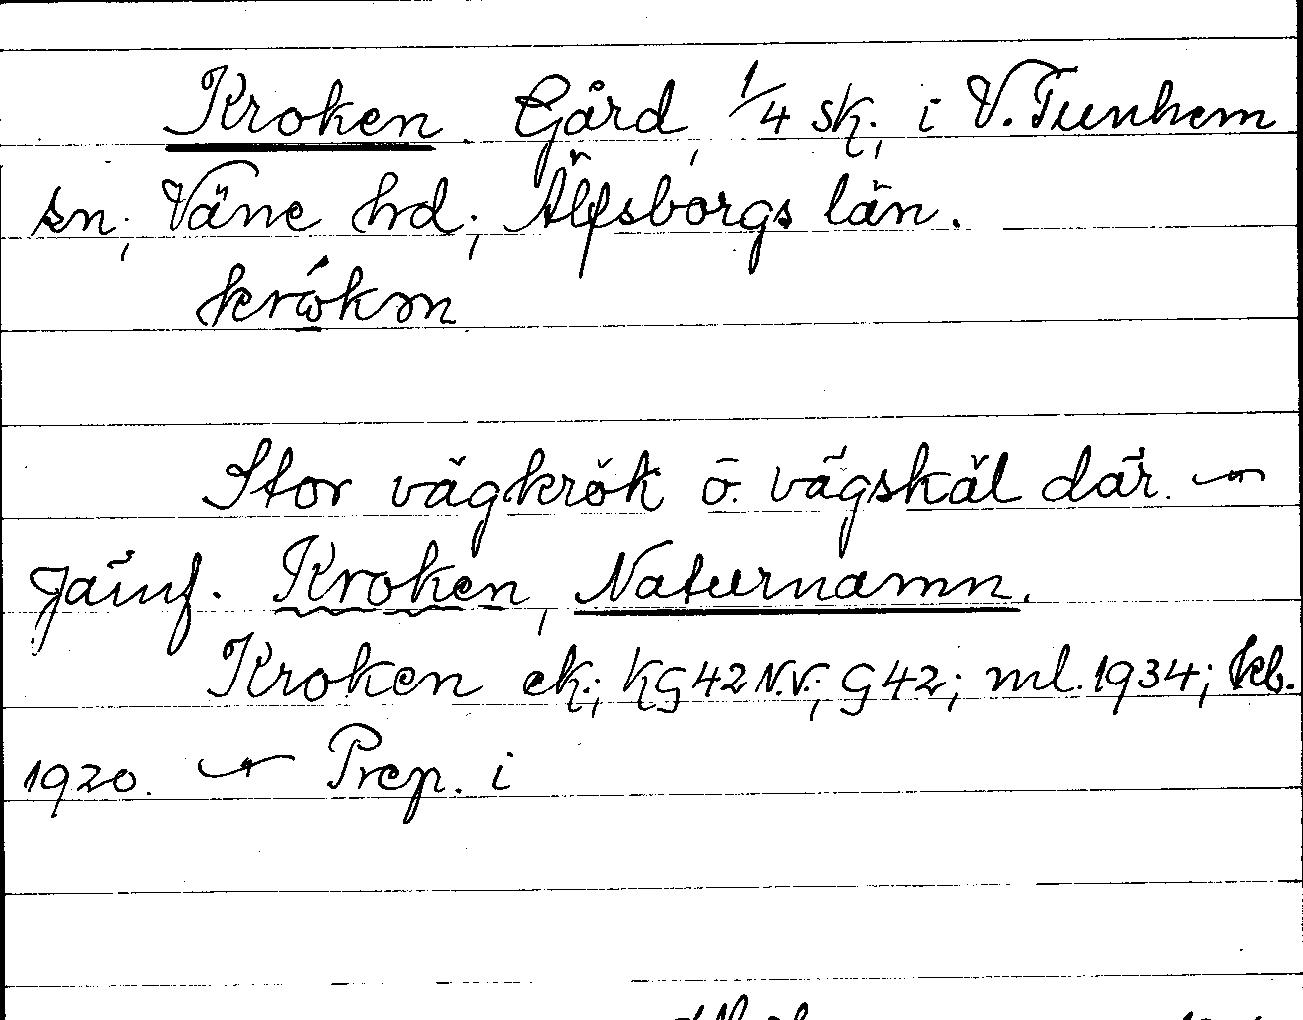 Kroken. Gård, 1/4 sk., i V. Tunhem
sn, Väne hd, Älfsborgs län.
Stor vägkrök o. vägskäl där. —
Jämf. Kroken, Naturnamn.
Kroken ek.; KG 42 N.V.; G 42; ml. 1934; kb.
1920. — Prep. i